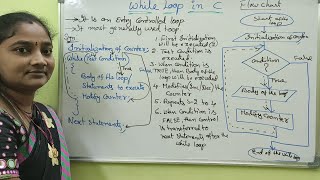 While Loop in C
→ It is an Entry Controlled Loop
→ It most generally used Loop
Initialization of Counter;
While (Test Condition)
{
Body of the Loop
Statements to execute
Modify Counter;
}
Next Statements;
True
1. First Initialization
will be executed
2. Test Condition is
executed
3. When Condition is
TRUE, then Body of the
loop will be executed
4. Modifies
the Counter
5. Repeats 2 to 4
6. When Condition is
FALSE, then control
is transferred to
next statements after the
while loop
Flow chart
Start while loop
Initialization of Counter
Condition
False
True
Body of the loop
Modify Counter
End of the while loop